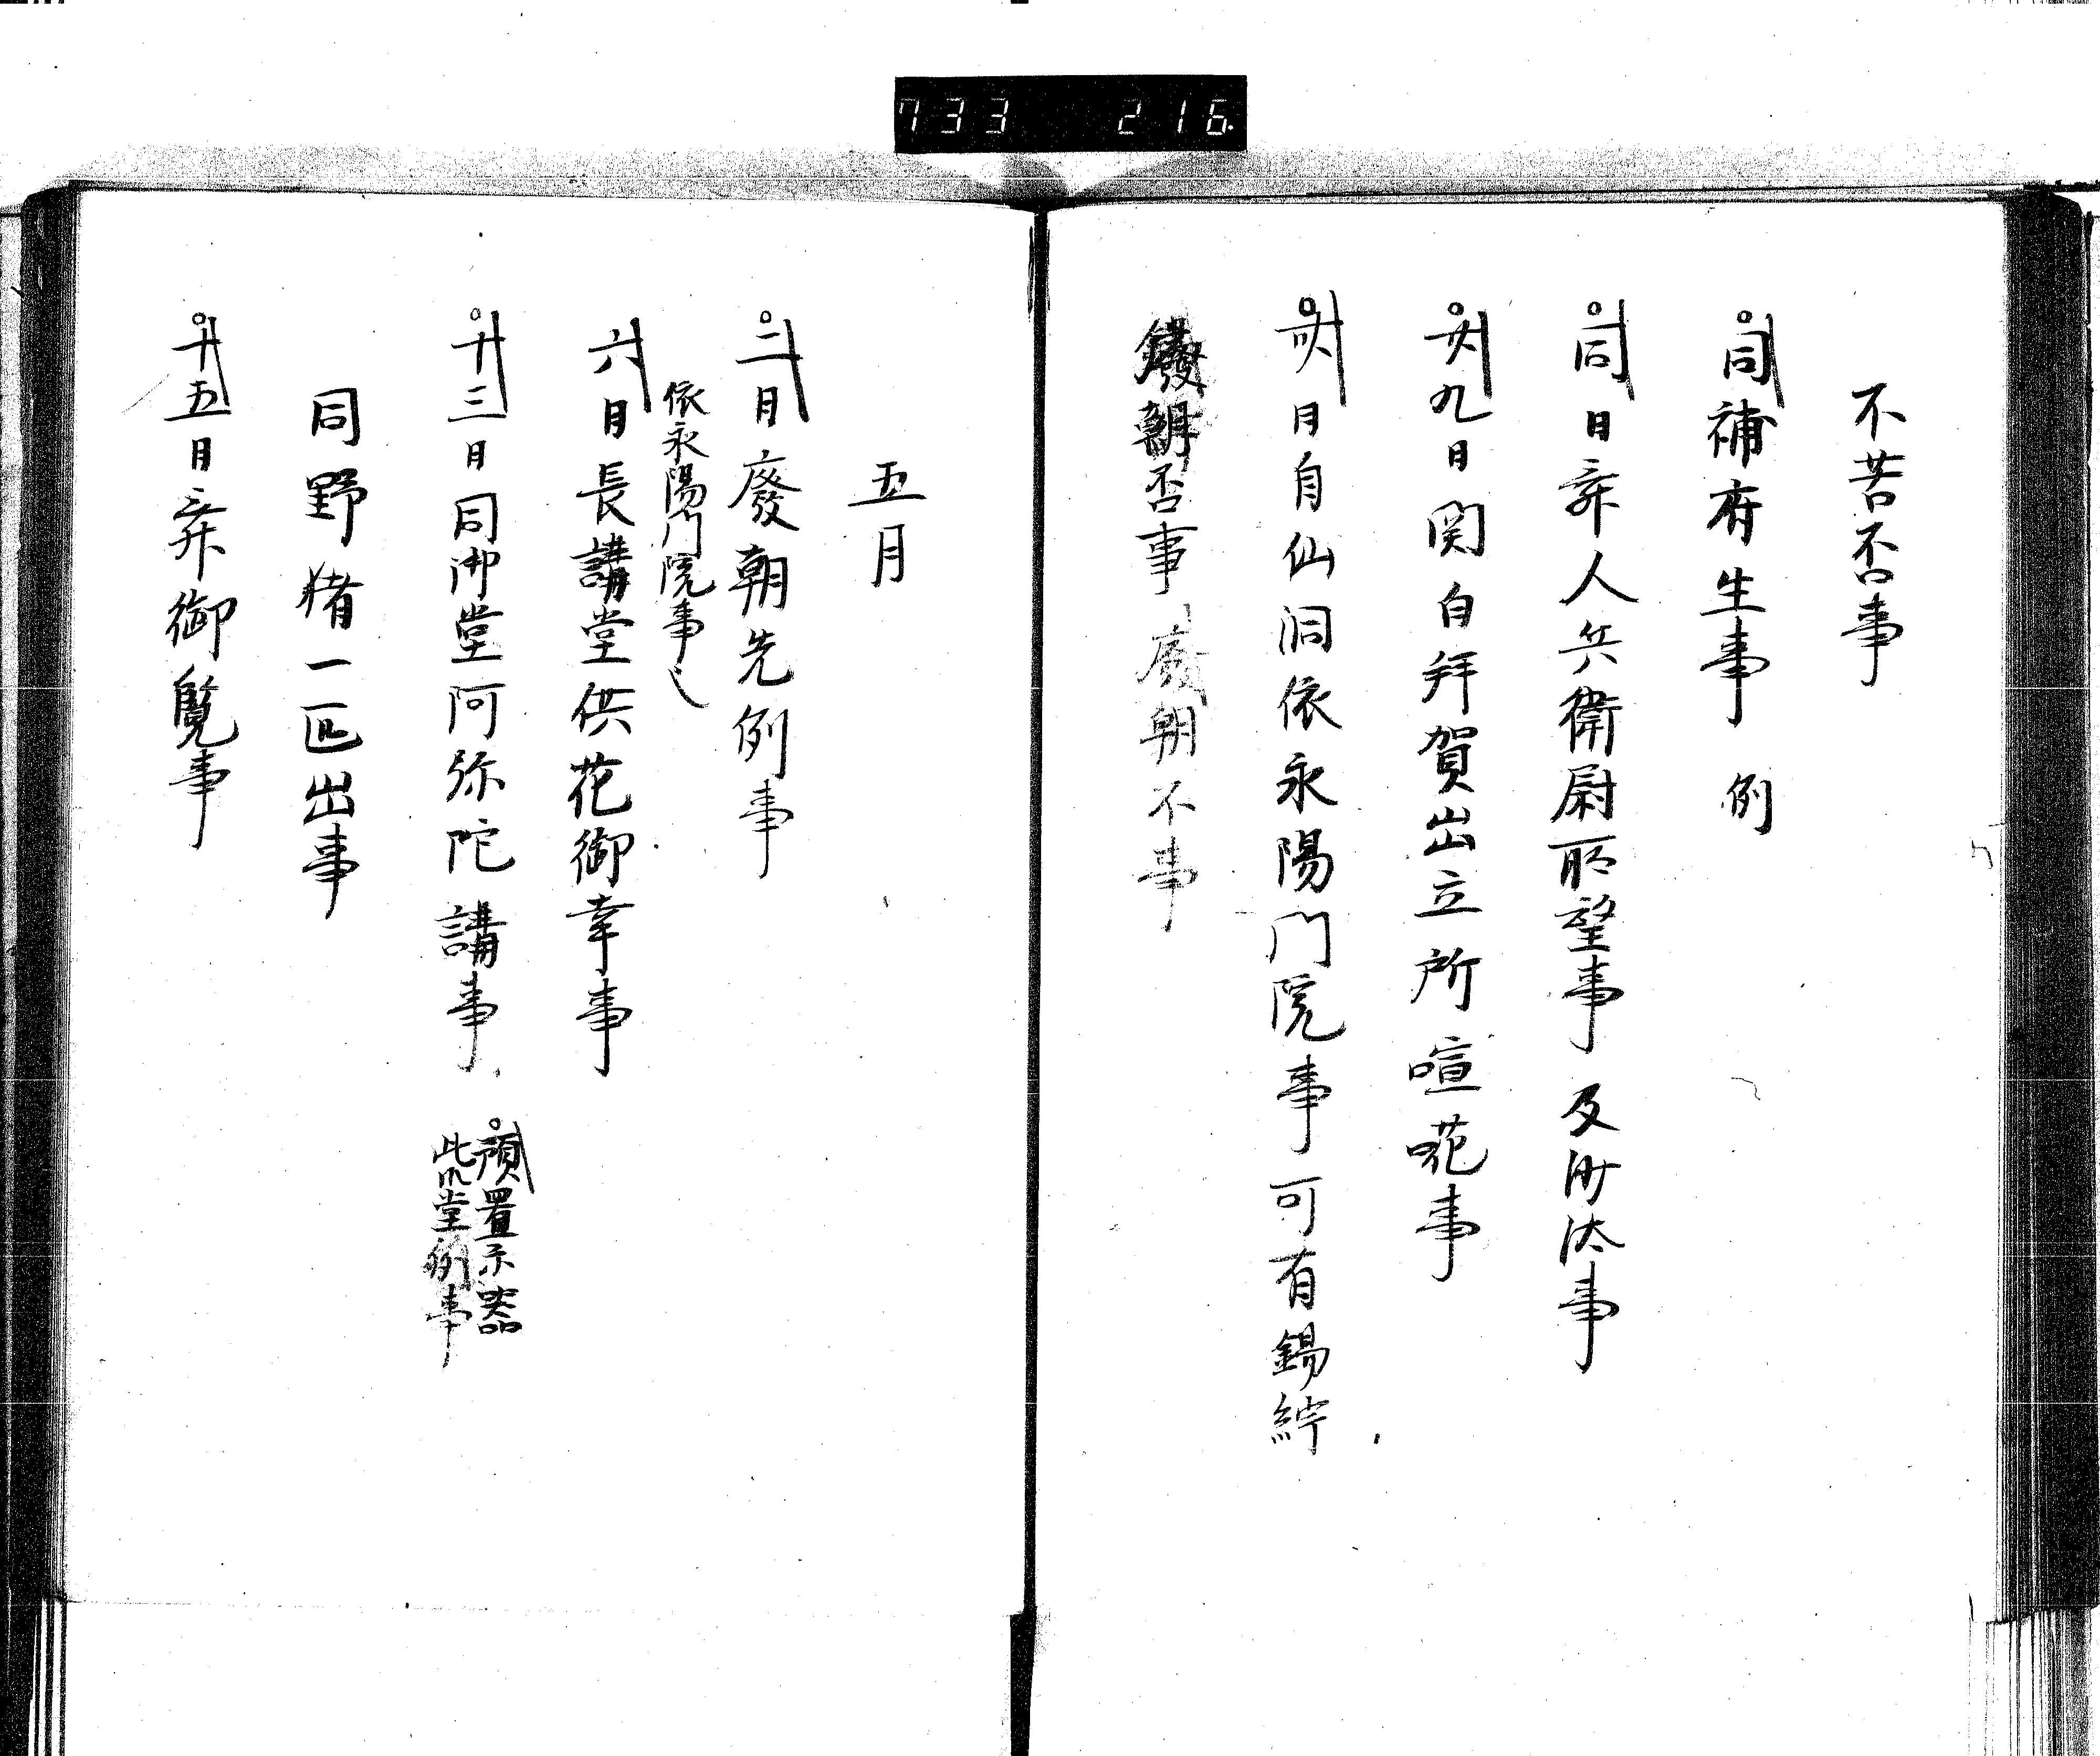 733 216
不苦否事
同補府生事 例
同日舞人兵衛尉所望事 及沙汰事
廿九日関白拝賀出立所喧嘩事
晦日自仙洞依永陽門院事可有錫紵
廢朝否事 廢朝不事
五月
二日廢朝先例事
依永陽門院事也
六日長講堂供花御幸事
十三日同御堂阿弥陀講事
預置示器
此堂例事
同野猪一匹出事
十五日舞御覧事